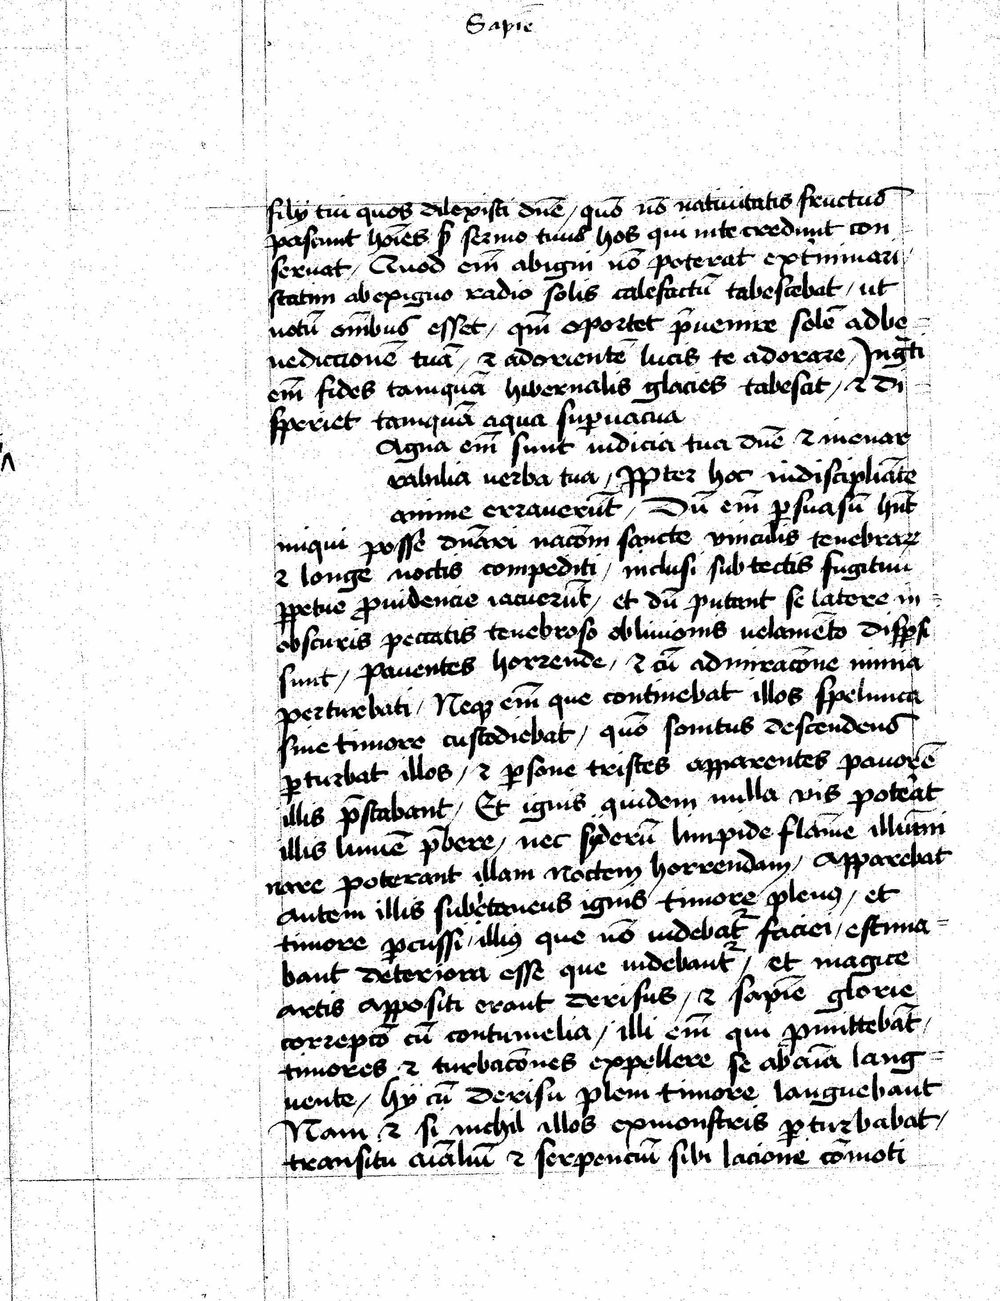 Sapiē
filij tui quos dilexisti dn̄e / quō nō natiuitatis fructus
pascunt hoīes s̄ sermo tuus hos qui in te credunt con
seruat / Quod em̄ ab igni nō poterat ext̓minari /
statim ab exiguo radio solis calefactū tabescebat / ut
notū om̄ibus esset / qm̄ oportet p̄uenire solē ad be=
nediccionē tuā / ⁊ ad orientē lucis te adorare / Ingr̄ti
em̄ fides tamquā hibernalis glacies tabescit / ⁊ di=
speriet tamquā aqua sup̱uacua
Agna em̄ sunt iudicia tua dn̄e ⁊ inenar
rabilia uerba tua / Ꝓpter hoc indisciplīate
anime errauerūt / Dū em̄ p̱suasū hn̄t
iniqui posse dn̄ari nacōm sancte vinculis tenebraꝝ
⁊ longe noctis compediti / inclusi sub tectis fugitiui
p̱petue ꝓuidencie iacuerūt / et dū putant se latere in=
obscuris peccatis tenebroso obliuionis uelamēto disp̱si
sunt / pauentes horrende / ⁊ cū admiracōne nimia
perturbati / Neqꝫ em̄ que continebat illos spelunca
sine timore custodiebat / quō sonitus descendens
p̱turbat illos / ⁊ p̱sone tristes apparentes pauorē
illis p̄stabant / Et ignis quidem nulla vis poterat
illis lumē p̄bere / nec siderū limpide flam̄e illūmi
nare poterant illam noctem horrendam / Apparebat
autem illis subitaneus ignis timore plenus / et
timore p̱cussi / illiꝰ que nō uidebat᷑ faciei / estima=
bant deteriora esse que uidebant᷑ / et magice
artis appositi erant derisus / ⁊ sapiē glorie
correpcō cū contumelia / illi em̄ qui p̱mittebāt /
timores ⁊ turbacōnes expellere se ab aīa lang=
uente / hij cū derisu pleni timore languebant
Nam ⁊ si nichil illos ex monstris p̱turbabat /
transitu aīaliū ⁊ serpenciū sibilacione cōmoti